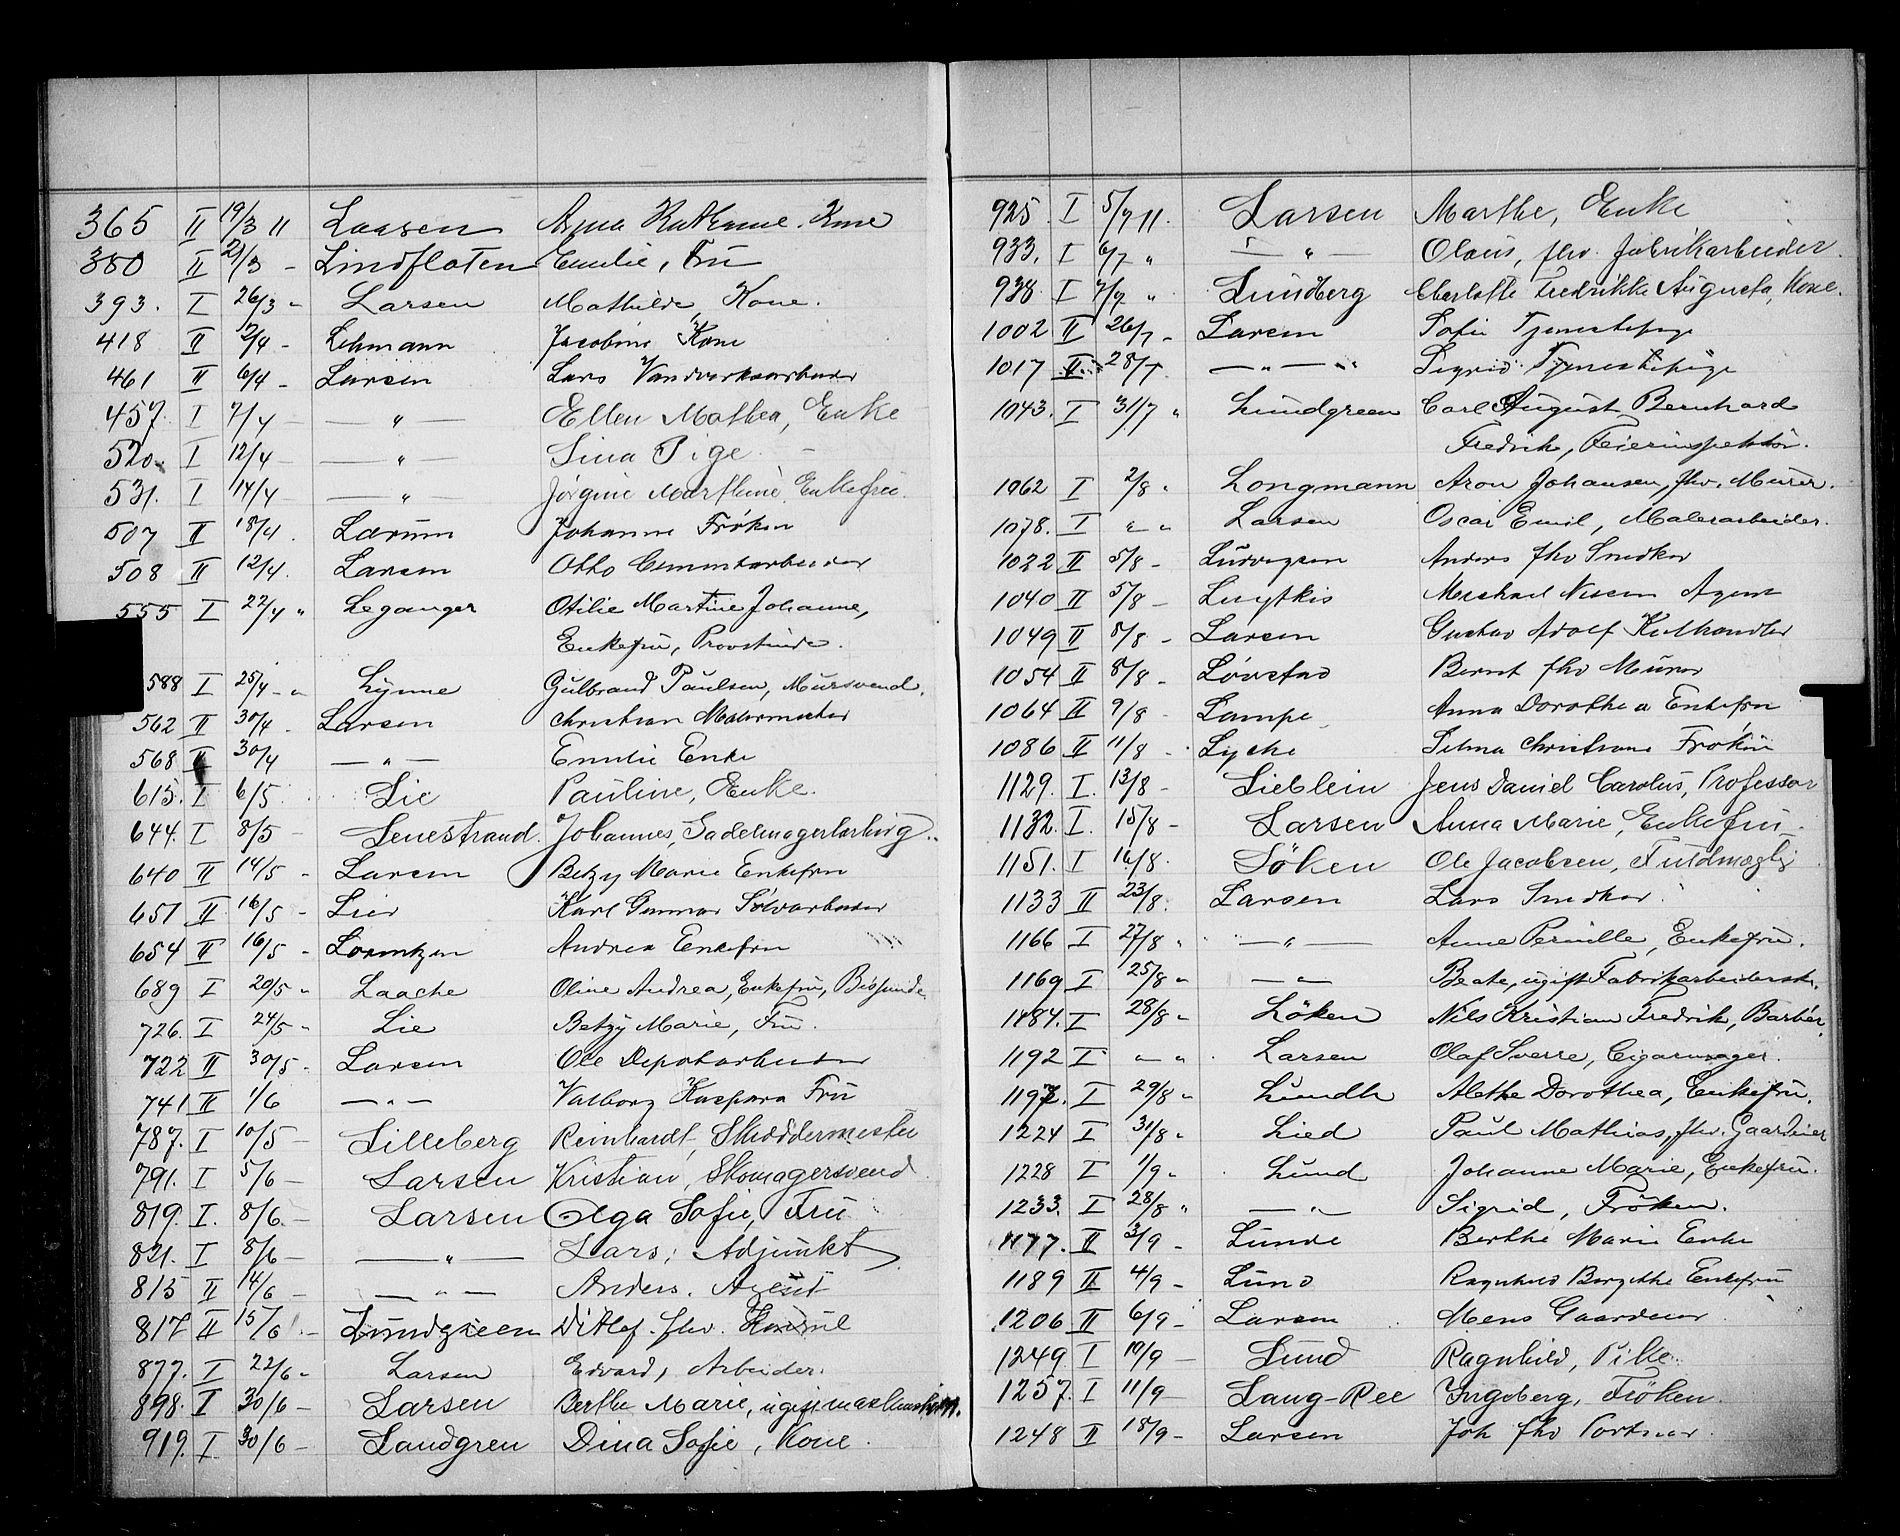 365 II 19/3 11 Laasen Anna Kathrine. Kone
380 II 21/3 - Lindfloten Emilie, Fru
393. I 26/3 " Larsen Mathilde, Kone.
418 II 2/4 - Lehmann Jacobine Kone
461 II 6/4 - Larsen Lars Vandverksarbeider
457. I 7/4 — " — Ellen Mathea, Enke
520. I 12/4 — " — Lina Pige. -
531. I 14/4 — " — Jørgine Marthine, Enkefru.
507 II 18/4. Lærum Johanne Frøken
508 II 12/4. Larsen Otto Cementarbeider
555 I 22/4 " Leganger Otilie Martine Johanne,
Enkefru, Provstinde.
588 I 25/4 - " Lynne Gulbrand Paulsen, Mursvend.
562 II 30/4 - Larsen Christian Malermester
568 II 30/4 — " — Emilie Enke
615. I 6/5. Lie Pauline, Enke.
644. I 8/5 - Lenestrand. Johannes, Sadelmagerlærling.
640 II 14/5 - Larsen Betzy Marie Enkefru
651 II 16/5 - Lier Karl Gunnar Sølvarbeider
654 II 16/5 - Lorentzen Andrea Enkefru
689 I 20/5 " Laache Oline Andrea, Enkefru, Bispinde
726. I 24/5 " Lie Betzy Marie, Fru.
722 II 30/5 - Larsen Ole Depotarbeider
741 II 1/6 — " — Valborg Kaspara Fru
787. I 10/5 - Lilleberg Reinhardt, Skræddermester
791. I 5/6 - Larsen Kristian, Skomagersvend
819. I. 8/6. - Larsen Olga Sofie, Fru
821. I 8/6 - — " — Lars, Adjunkt
815 II 14/6 - — " — Anders. Agent
817 II 15/6 - Lundgreen Ditlef. fhv.
877. I 22/6 " Larsen Edvard, Arbeider.
898. I 30/6 - Larsen Berthe Marie,
919. I. 30/6 - Landgren Dina Sofie, Kone.
925. I 5/7 11. Larsen Marthe, Enke
933. I 6/7 " — " — Olaus, fhv. Fabrikarbeider.
938. I 7/7 " Lundberg Charlotte Fredrikke Augusta, Kone.
1002 II 26/7 - Larsen Sofie Tjenestepige
1017 II 28/7. — " — " Sigrid Tjenestepige
1043. I 31/7 " Lundgreen Carl August Bernhard
Fredrik, Feierinspektør.
1062 I 2/8 " Longmann Aron Johansen, fhv. Murer.
1078. I " " Larsen Oscar Emil, Malerarbeider.
1022 II 5/8 - Ludvigsen Anders fhv Snedker
1040 II 5/8 - Michael Nissen Agent
1049 II 8/8 - Larsen Gustav Adolf Kulhandler
1054 II 8/8 - Løvstad Bernt fhv Murer
1064 II 9/8 - Lampe Anna Dorothea Enkefru
1086 II 11/8 - Lycke Selma Christiane Frøken
1129. I. 13/8 - Lieblein Jens Daniel Carolus, Professor
1132. I. 15/8 - Larsen Anna Marie, Enkefru -
1151. I 16/8. Løken Ole Jacobsen, Fuldmægtig
1133 II 23/8. Larsen Lars Snedker.
1166 I 27/8 " — " — Anne Pernille, Enkefru.
1169 I 25/8 " — " Beate, ugift Fabrikarbeiderske.
1184. I 28/8 " Løken Nils Kristian Fredrik, Barbér.
1192 I " " Larsen Olaf Sverre, Cigarmager.
1197. I 29/8 " Lundh Alethe Dorothea, Enkefru.
1224 I 31/8 " Lied Paul Mathias, fhv. Gaardeier
1228 I 1/9 " Lund Johanne Marie, Enkefru.
1233. I 28/8 " — " Sigrid, Frøken.
1177. II 3/9 - Lunde Berthe Marie Enke
1189 II 4/9 - Lund Ragnhild Bergithe Enkefru
1206 II 6/9 - Larsen Mens Gaardeier
1249. I 10/9 - Lund Ragnhild, Pike.
1257. I 11/9 - Lang-Ree Ingeborg, Frøken.
1248 II 18/9 - Larsen Joh fhv Portner.